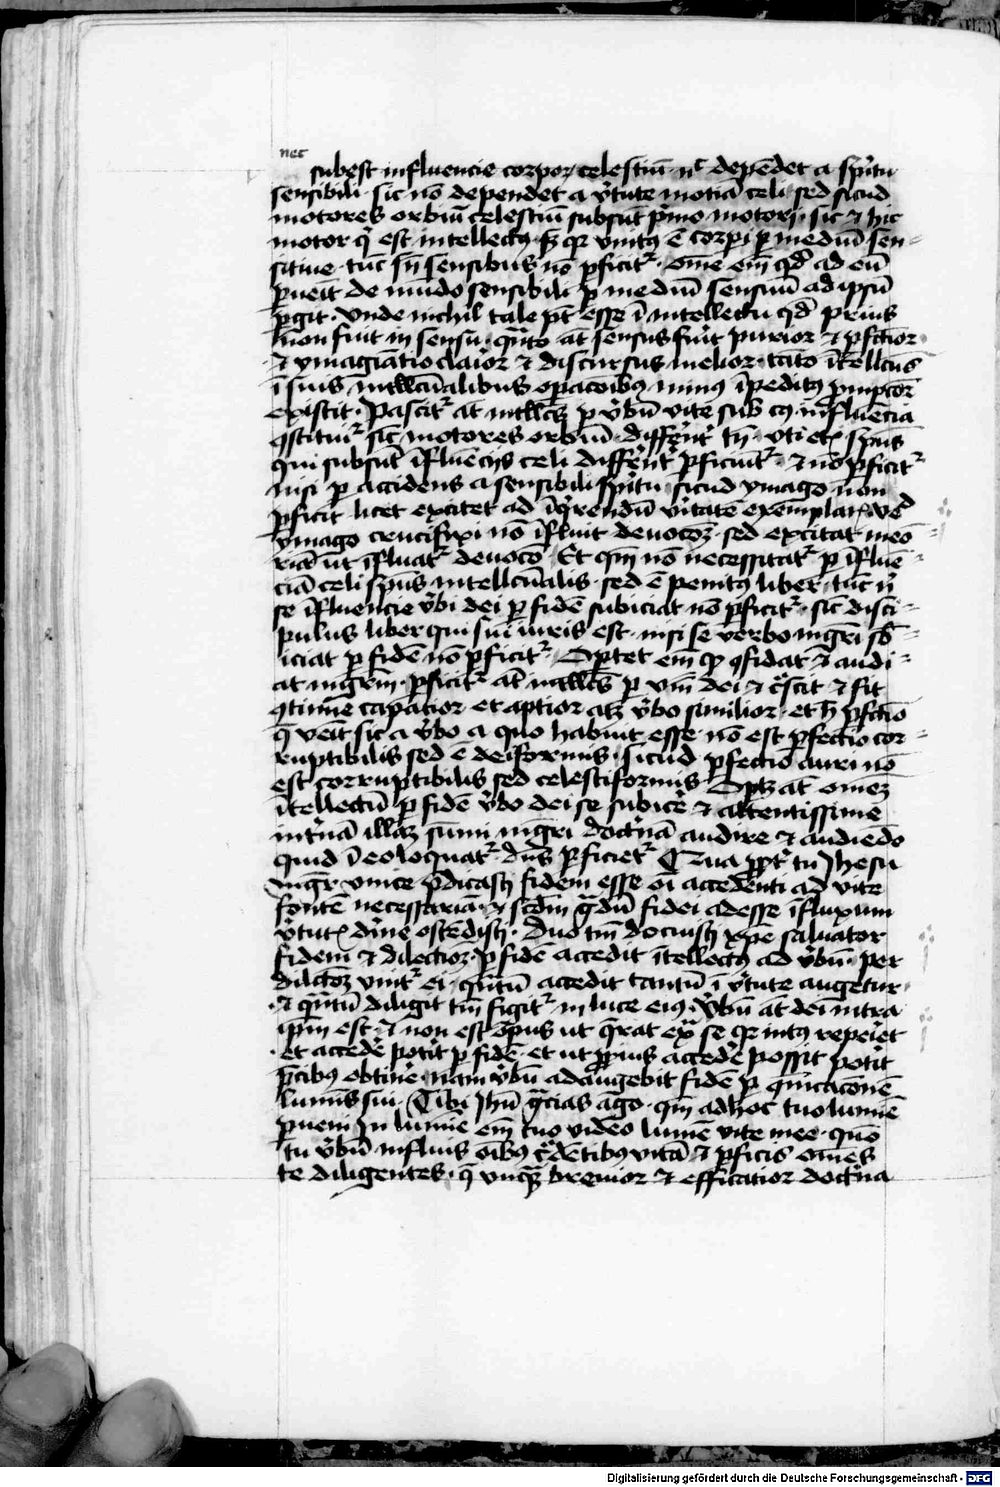 nec
subest influencie corpor celestiū · nc depēdet a spu
sensibili · sic nō dependet a vtute motiā celi sed sicud
motores orbiū celestiū subsūt pmo motori · sic ⁊ hic
motor q est intellectus · sz qr vnitꝯ ē corpi p mediū sen=
sitiue · tūc sn sensibus nō pficit · ome em qd ad eū
puēit de mūdo sensibili p mediū sensuū ad ipsū
pgit · vnde nichil tale pt esse ī intellectu qd prius
non fuit in sensu · qnto at sensus fuit purior ⁊ pfctior
⁊ ymagiatio clarior ⁊ discursus melior · tāto ītellcus
ī suis intllcualibus opacoibꝯ minꝯ īpeditꝯ prōptior
existit · Pascit at intllcs p vbū vite sub cꝯ influēcia
qstituit sic motores orbiū · differūt tn · vti et spus
qui subsūt īfluēcijs celi differēt pficiūt · ⁊ nō pficit
nisi p accidens a sensibili spu · sicud ymago non
pficit licet excitet ad īqrendū vitatē exēmplar vel
ymago crucifixi nō īfluit deuocoz · sed excitat meō
riā ut īfluat deuoco · Et qm nō necessitat p īfluē
ciā celi spus intellcualis · sed ē penitꝯ liber · tūc n
se īfluencie vbi dei p fidē subiciat nō pficit · sic disci=
pulus liber qui sui iuris est · nisi se verbo mgri sb=
iciat p fidē nō pficit · Optet em qꝫ qfidat ⁊ audi=
at mgrm · pficit at intllcs p vm dei ⁊ cscit ⁊ fit
qtinue capacior et aptior atqꝫ vbo similior · et h pfctio
q vēit sic a vbo a quo habuit esse nō est pfectio cor=
ruptibilis sed ē deiformis · sicud pfectio auri nō
est corruptibilis sed celestiformis Optz at omēz
ītellectū p fidē vbo dei se subice ⁊ attentissime
int̄nā illaz sūmi mgri doctnā audire ⁊ audiēdo
quid ī eo loquat · dns pficiet Tua ppt tu Jhesu
mgr vnice pdicasti fidem esse oi accedenti ad vite
fontē necessariā · ⁊ scdm gdū fidei adesse īfluxum
vtutꝭ diuine ostēdisti · Duo tm docuisti xpe saluator
fidem ⁊ dilectioez · p fidē accedit ītellectꝯ ad vbū · per
dilcoez vnit ei · qntū accedit tantū ī vtute augetur
⁊ qntū diligit tm figit in luce eiꝯ · Vbū at dei intra
ipm est ⁊ non est opus ut qrat ext se qr intꝯ repeiet
et accedē potit p fidē · et ut ppius accedē possit potit
pcibꝯ obtinē · nam vbū adaugebit fidē p qmicaconē
lumis sui · Tibi Jhu gcias ago · qm ad hoc tuo lumie
pueni In lumie em tuo video lumē vite mee · quō
tu vbū influis oibꝯ cdētibꝯ vitā ⁊ pficis omēs
te diligentes · q vnqꝫ breuior ⁊ efficatior doctna